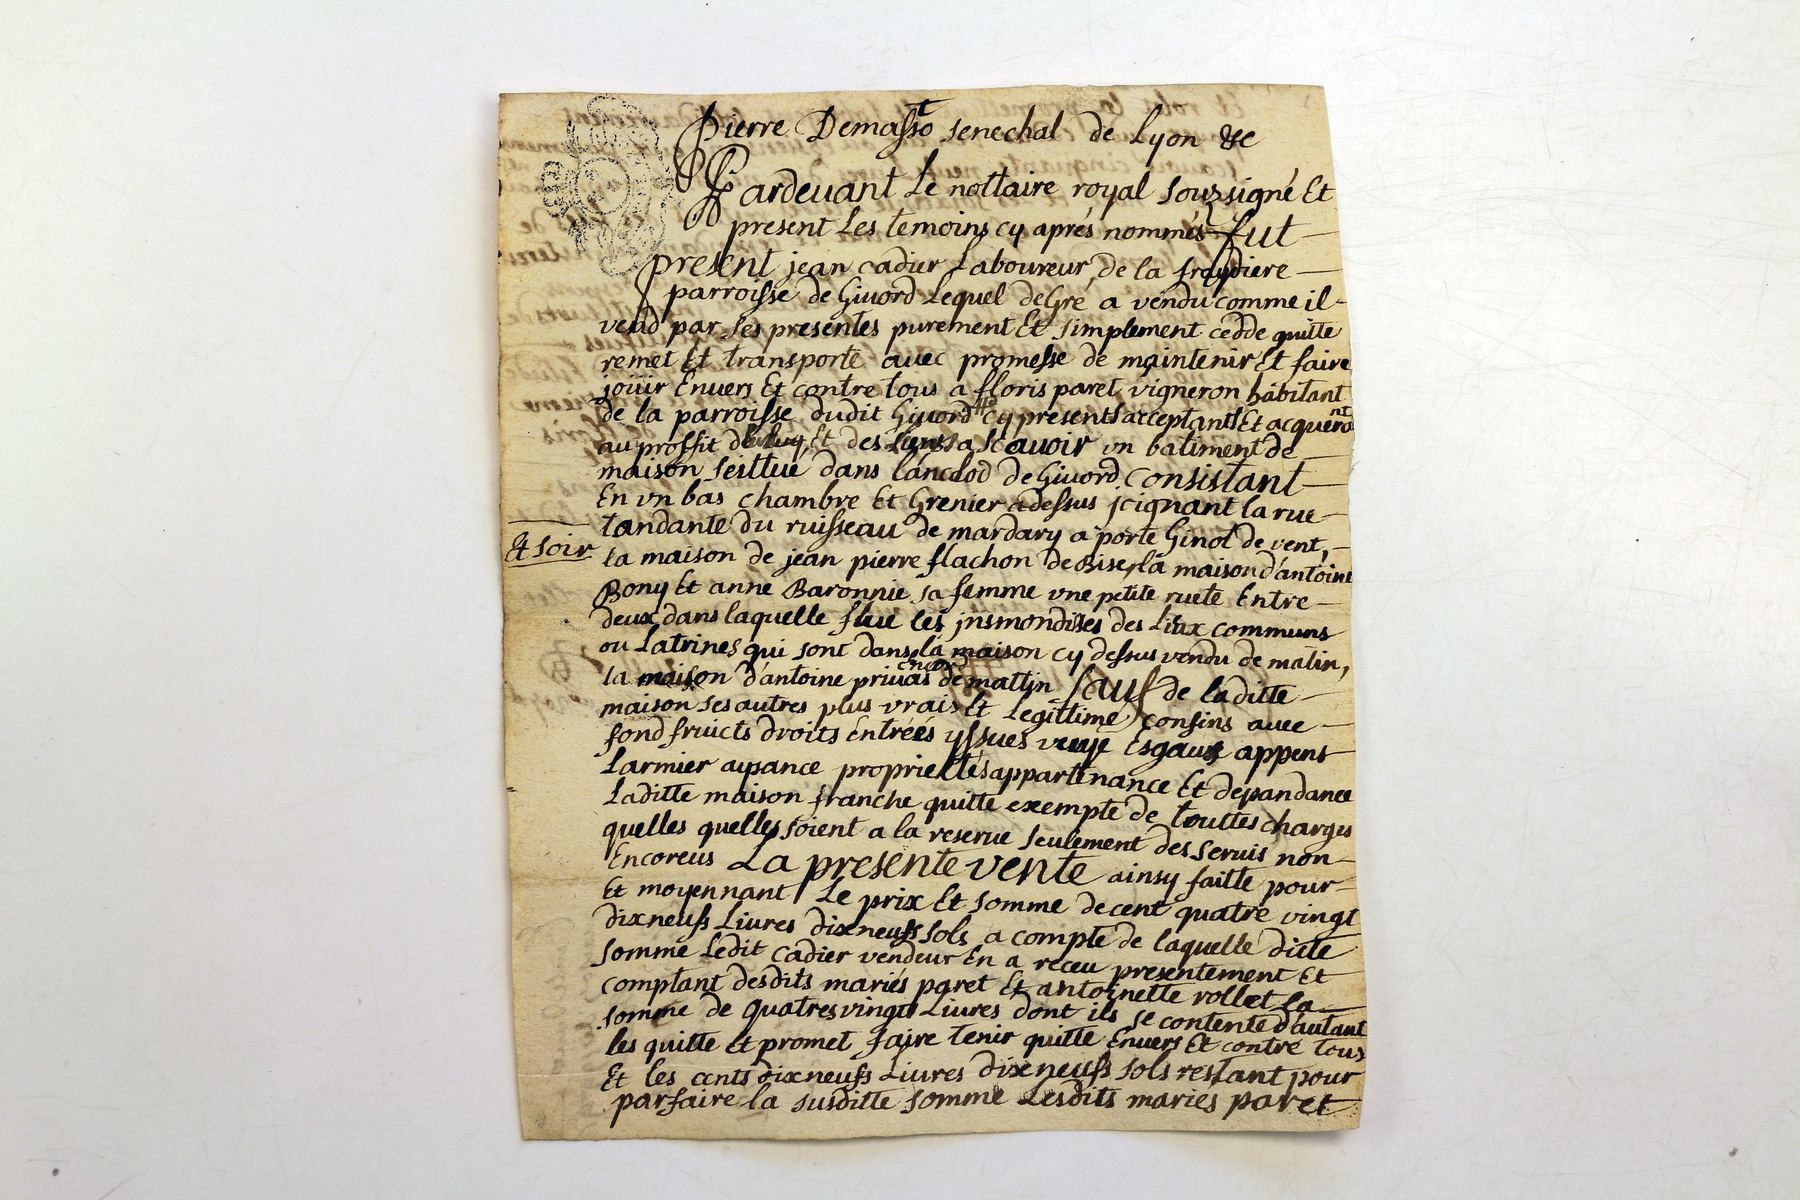 Pierre Demasso senechal de Lyon &c
Pardevant Le nottaire royal souzsigné Et
present Les temoins cy aprés nommés fut
present jean cadier Laboureur de la fraydiere
parroisse de Givord Lequel deGré a vendu comme il
vend par Les presentes purement Et simplement cedde quitte
remet Et transporte avec promesse de maintenir Et faire
jouïr Envers Et contre tous a floris paret vigneron habitant
de la parroisse dudit Givord cy presents acceptants Et acquerant
au proffit de luy Et des siens a scavoir un batiment de
maison seittué dans lanclod de Givord consistant
En vn bas chambre Et Grenier adessus joignant la rue
tandante du ruisseau de mardary a porte Ginot de vent,
Et soir
la maison de jean pierre flachon de Bise, la maison d'antoine
Bony Et anne Baronnie sa femme vne petite ruete Entre
deux dans laquelle flue les jnsmondises des Liux communs
ou Latrines qui sont dans la maison cy dessus vendu de matin,
la maison d'antoine privas encord de mattin sauf de laditte
maison ses autres plus vrais Et Legittime confins avec
fond fruicts droits éntréés yssues veuye Esgaux appens
Larmier aysance proprietés appartenance Et dependance
Laditte maison franche quitte exempte de touttes charges
quelles quelles soient a la reserve seulement des servis non
Encoreus La presente vente ainsy faitte pour
Et moyennant Le prix Et somme de cent quatre vingt
dixneufs Livres dixneufs sols a compte de laquelle dicte
somme Ledit cadier vendeur En a receu presentement Et
comptant desdits mariés paret Et antoinette rollet La
somme de quatresvingt Livres dont ils se contente d'autant
les quitte Et promet faire tenir quitte Envers Et contre tous
Et les cents dixneufs Livres dixneufs sols restant pour
parfaire la susditte somme Lesdits maries paret